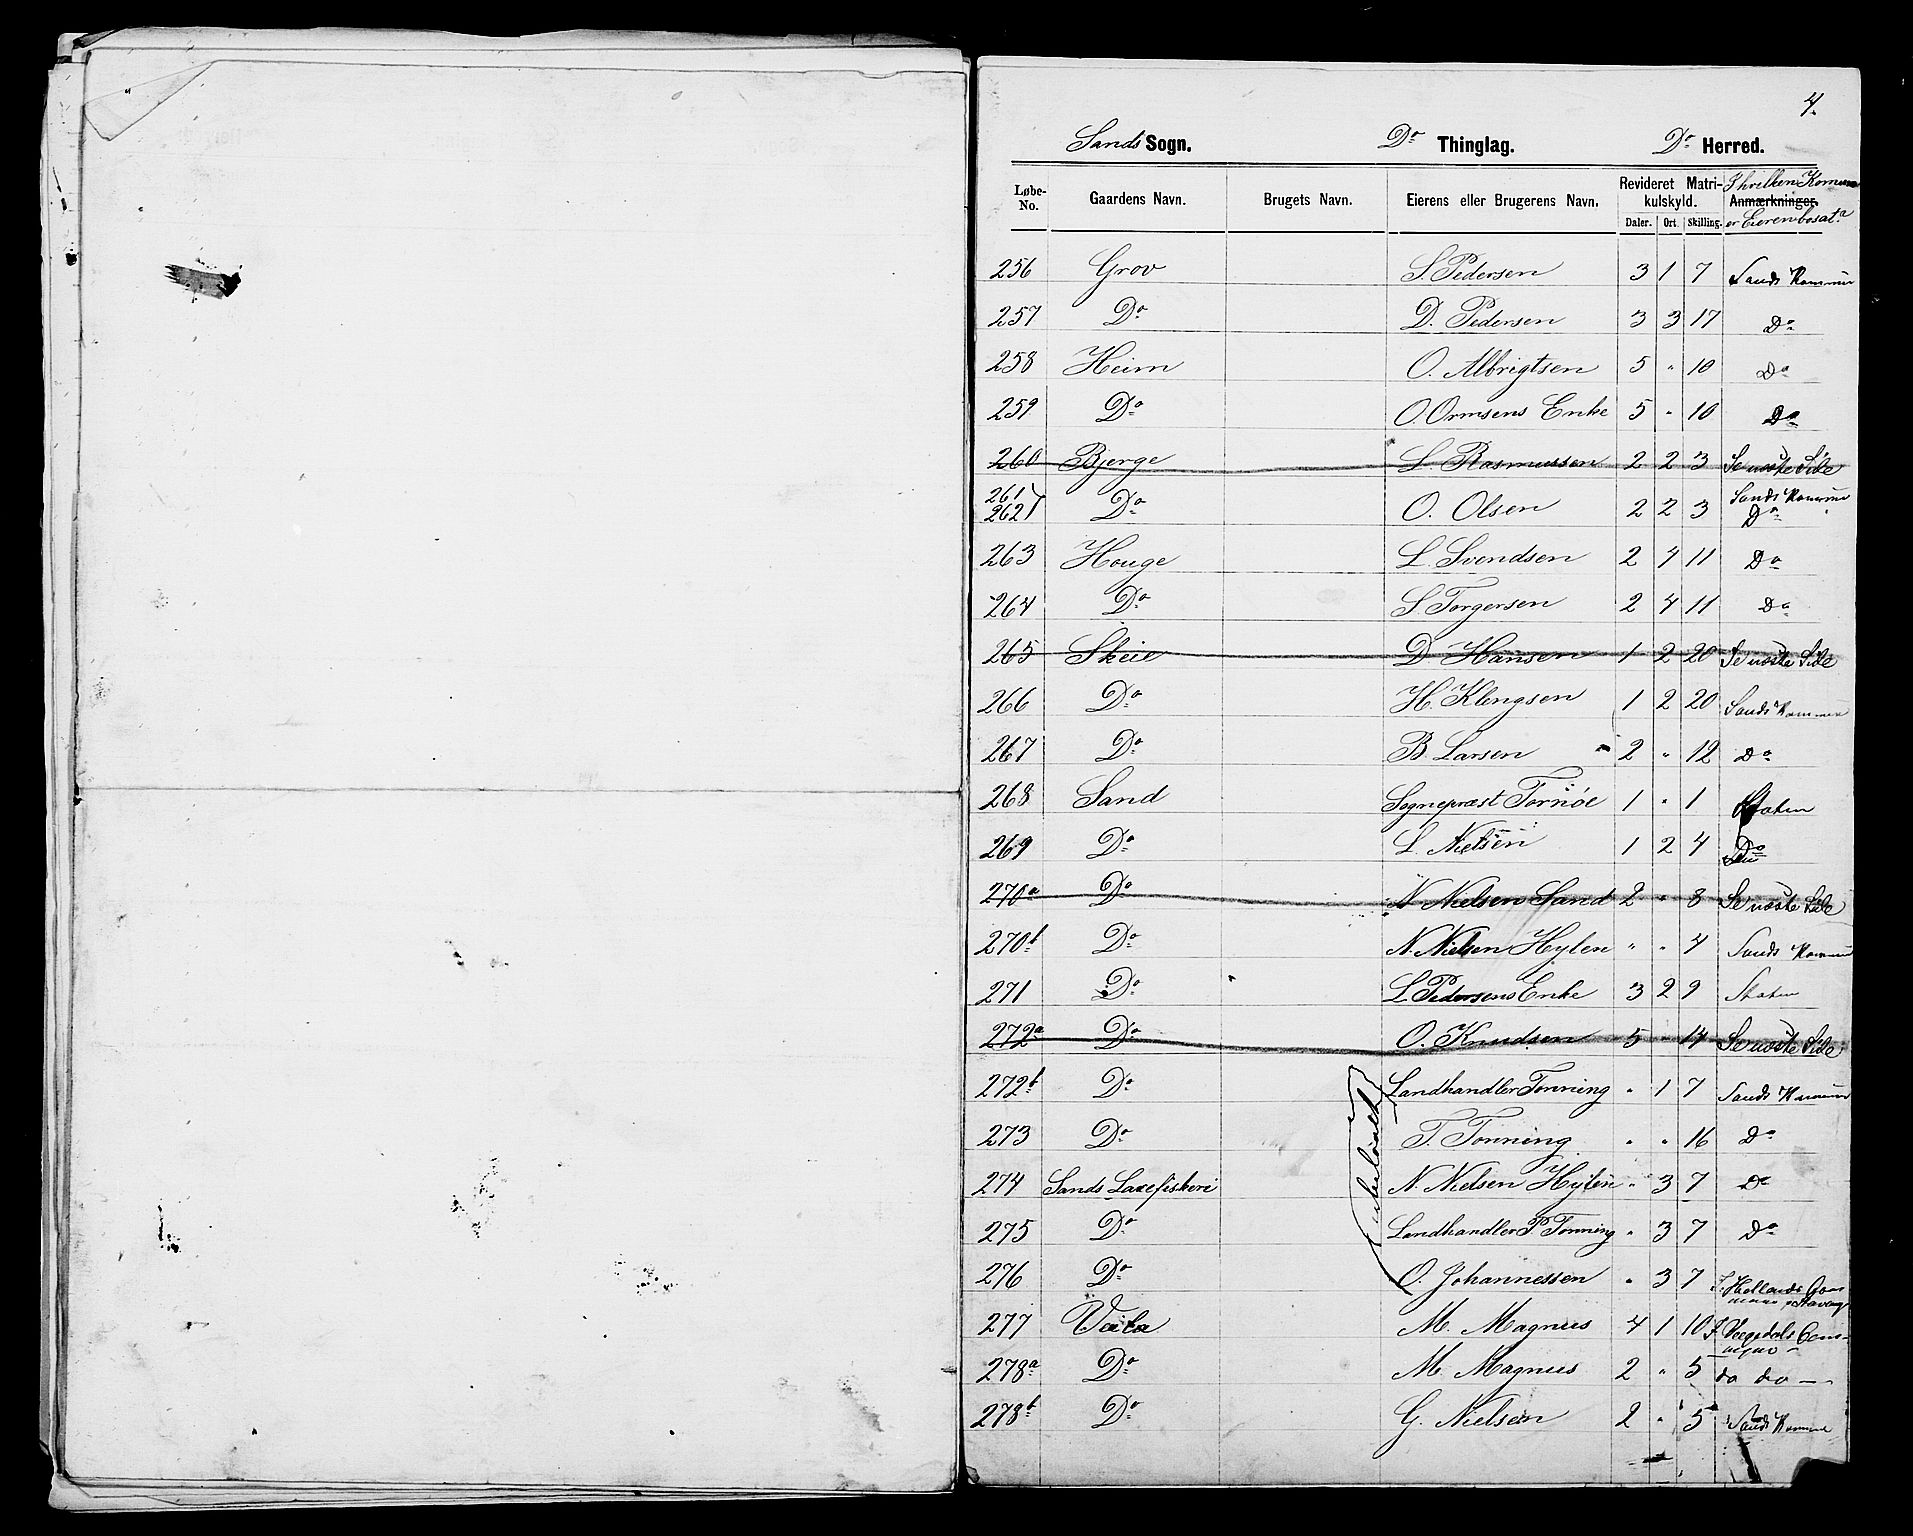 4.
Sands Sogn. Do Thinglag. Do Herred.
Løbe-No. Gaardens Navn. Brugets Navn. Eierens eller Brugerens Navn. Revideret Matrikulskyld. Daler. Ort. Skilling. Anmærkninger. I hvilken Komune er Eieren bosat?
256 Grov S. Pedersen 3 1 7 Sands Kommune
257 Do D. Pedersen 3 3 17 Do
258 Heim O. Albrigtsen 5 " 10 Do
259 Do O. Ormsens Enke 5 " 10 Do
260 Bjerge L. Rasmussen 2 2 3 Se næste Side
261 262 Do O. Olsen 2 2 3 Sands Kommune Do
263 Houge L. Svendsen 2 4 11 Do
264 Do S. Torgersen 2 4 11 Do
265 Skeie D Hansen 1 2 20 Se næste Side
266 Do H. Klengsen 1 2 20 Sands Kommune
267 Do B. Larsen 2 " 12 Do
268 Sand Sognepræst Tornöe 1 " 1 Staten
269 Do L. Nielsen 1 2 4 Do
270a Do N Nielsen Sand 2 " 8 Se næste Side
270b Do N. Nielsen Hylen " " 4 Sands Kommune
271 Do L Pedersens Enke 3 2 9 Staten
272a Do O. Knudsen 5 " 14 Se næste Side
272b Do Landhandler Tonning " 1 7 Sands Kommune
273 Do T. Tonning " " 16 Do
274 Sands Laxefiskeri N. Nielsen Hylen " 3 7 Do
275 Do Landhandler P. Tonning " 3 7 Do
276 Do O. Johannessen " 3 7
277 Vaila M. Magnus 4 1 10
278a Do M. Magnus 2 " 5 do do
278b Do G. Nielsen 2 " 5 Sands Kommune